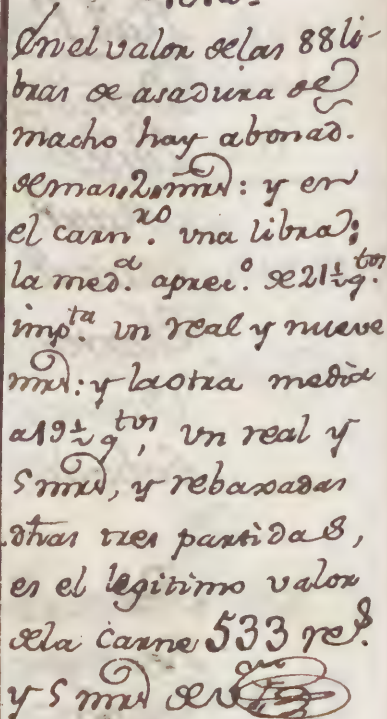 En el valor de las 88 li-
bras de asadura de
macho hay abonad.
de mas, 2, mrs: y en
el carn.ro una libra;
la med.a aprec.o de 21½ q.tos
imp.ta un real y nueve
mrs: y la otra media
a 19½ q.tos, un real y
5 mrs, y rebaxadas
dhas tres partidas,
es el legitimo valor
de la carne 533 re.s
y 5 mrs de v.on